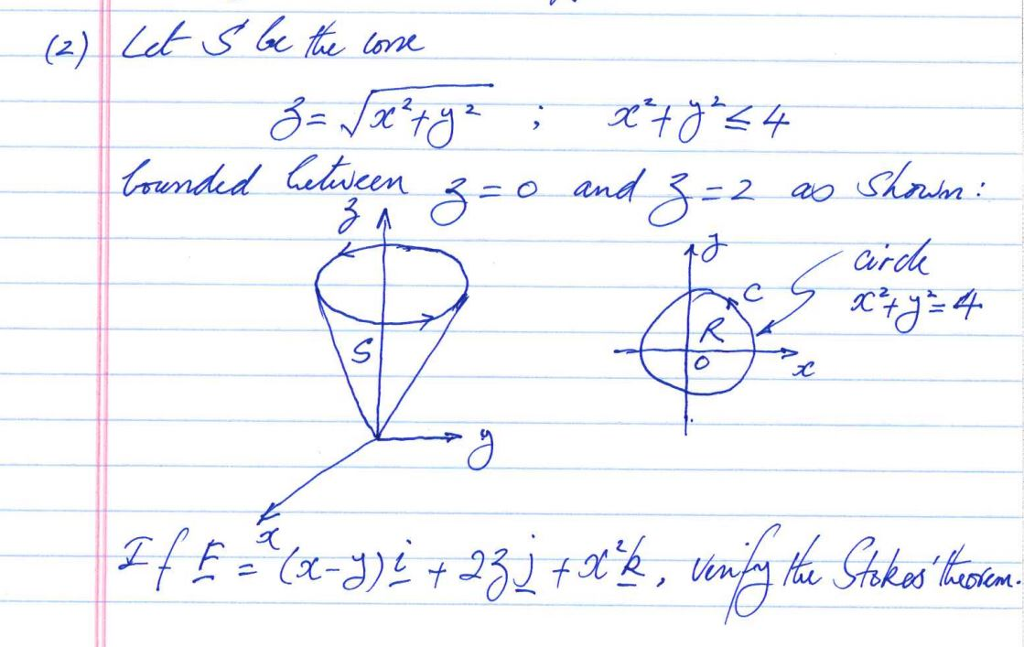 (2) Let S be the cone
z = √x²+y² ; x²+y² ≤ 4
bounded between z = 0 and z = 2 as shown:
z
S
y
x
y
C
R
O
x
circle
x²+y²=4
If F = (x-y) i + 2z j + x² k, verify the Stokes' theorem.